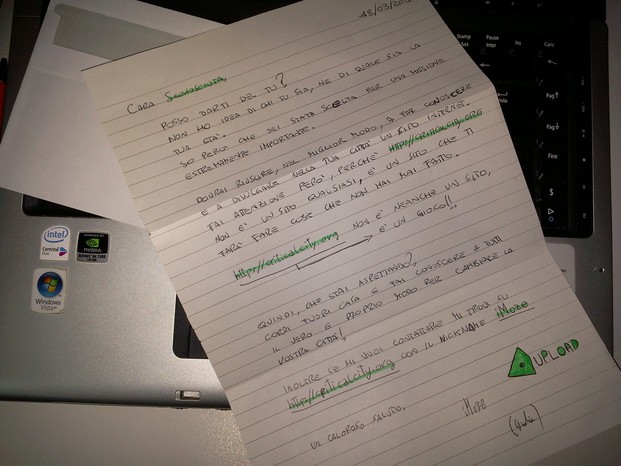 18/03/20
CARA SCONOSCIUTA,
POSSO DARTI DEL TU?
NON HO IDEA DI CHI TU SIA, NE DI QUALE SIA LA
TUA ETÀ.
SO PERÒ CHE SEI STATA SCELTA PER UNA MISSIONE
ESTREMAMENTE IMPORTANTE.
DOVRAI RIUSCIRE, NEL MIGLIOR MODO, A FAR CONOSCERE
E A DIVULGARE NELLA TUA CITTÀ UN SITO INTERNET.
FAI ATTENZIONE PERÒ, PERCHÈ HTTP://CRITICALCITY.ORG
NON E' UN SITO QUALSIASI, E' UN SITO CHE TI
FARÀ FARE COSE CHE NON HAI MAI FATTO.
http://criticalcity.org NON E' NEANCHE UN SITO,
E' UN GIOCO!!
QUINDI, CHE STAI ASPETTANDO?
CORRI FUORI CASA E FAI CONOSCERE A TUTTI
IL VERO E PROPRIO MODO PER CAMBIARE LA
VOSTRA CITTÀ!
INOLTRE SE MI VUOI CONTATTARE MI TROVI SU
http://criticalcity.org CON IL NICKNAME iMoze
UPLOAD
UN CALOROSO SALUTO.
iMoze
intel
Centrino
Duo
NVIDIA
Windows
Vista
Pause
Inser
Canc